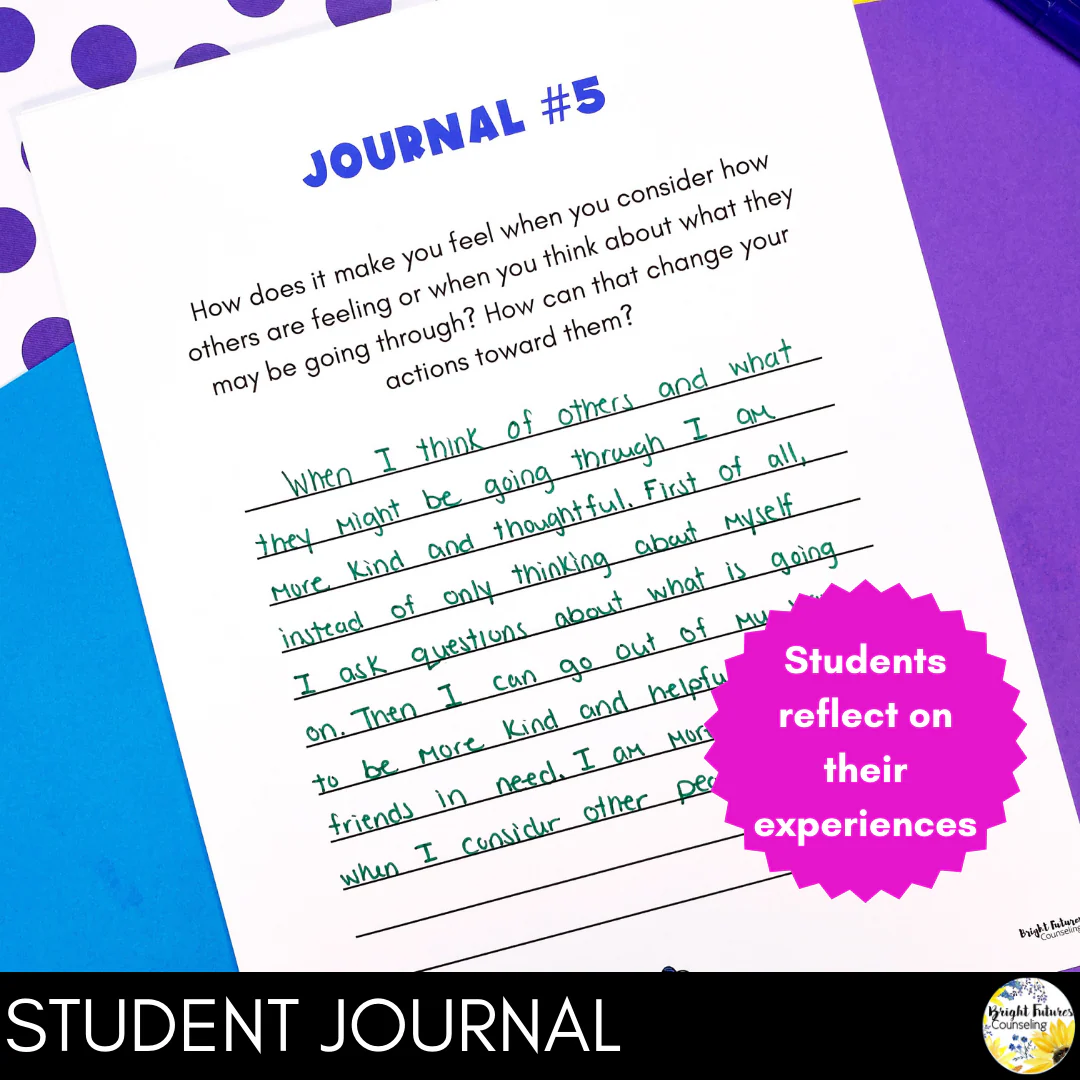 JOURNAL #5
How does it make you feel when you consider how
others are feeling or when you think about what they
may be going through? How can that change your
actions toward them?
When I think of others and what
they might be going through I am
more kind and thoughtful. First of all,
instead of only thinking about myself
I ask questions about what is going
on. Then I can go out of my
to be more kind and
friends in need. I am
when I consider other
Students
reflect on
their
experiences
Bright Futures
Counseling
STUDENT JOURNAL
Bright Futures
Counseling